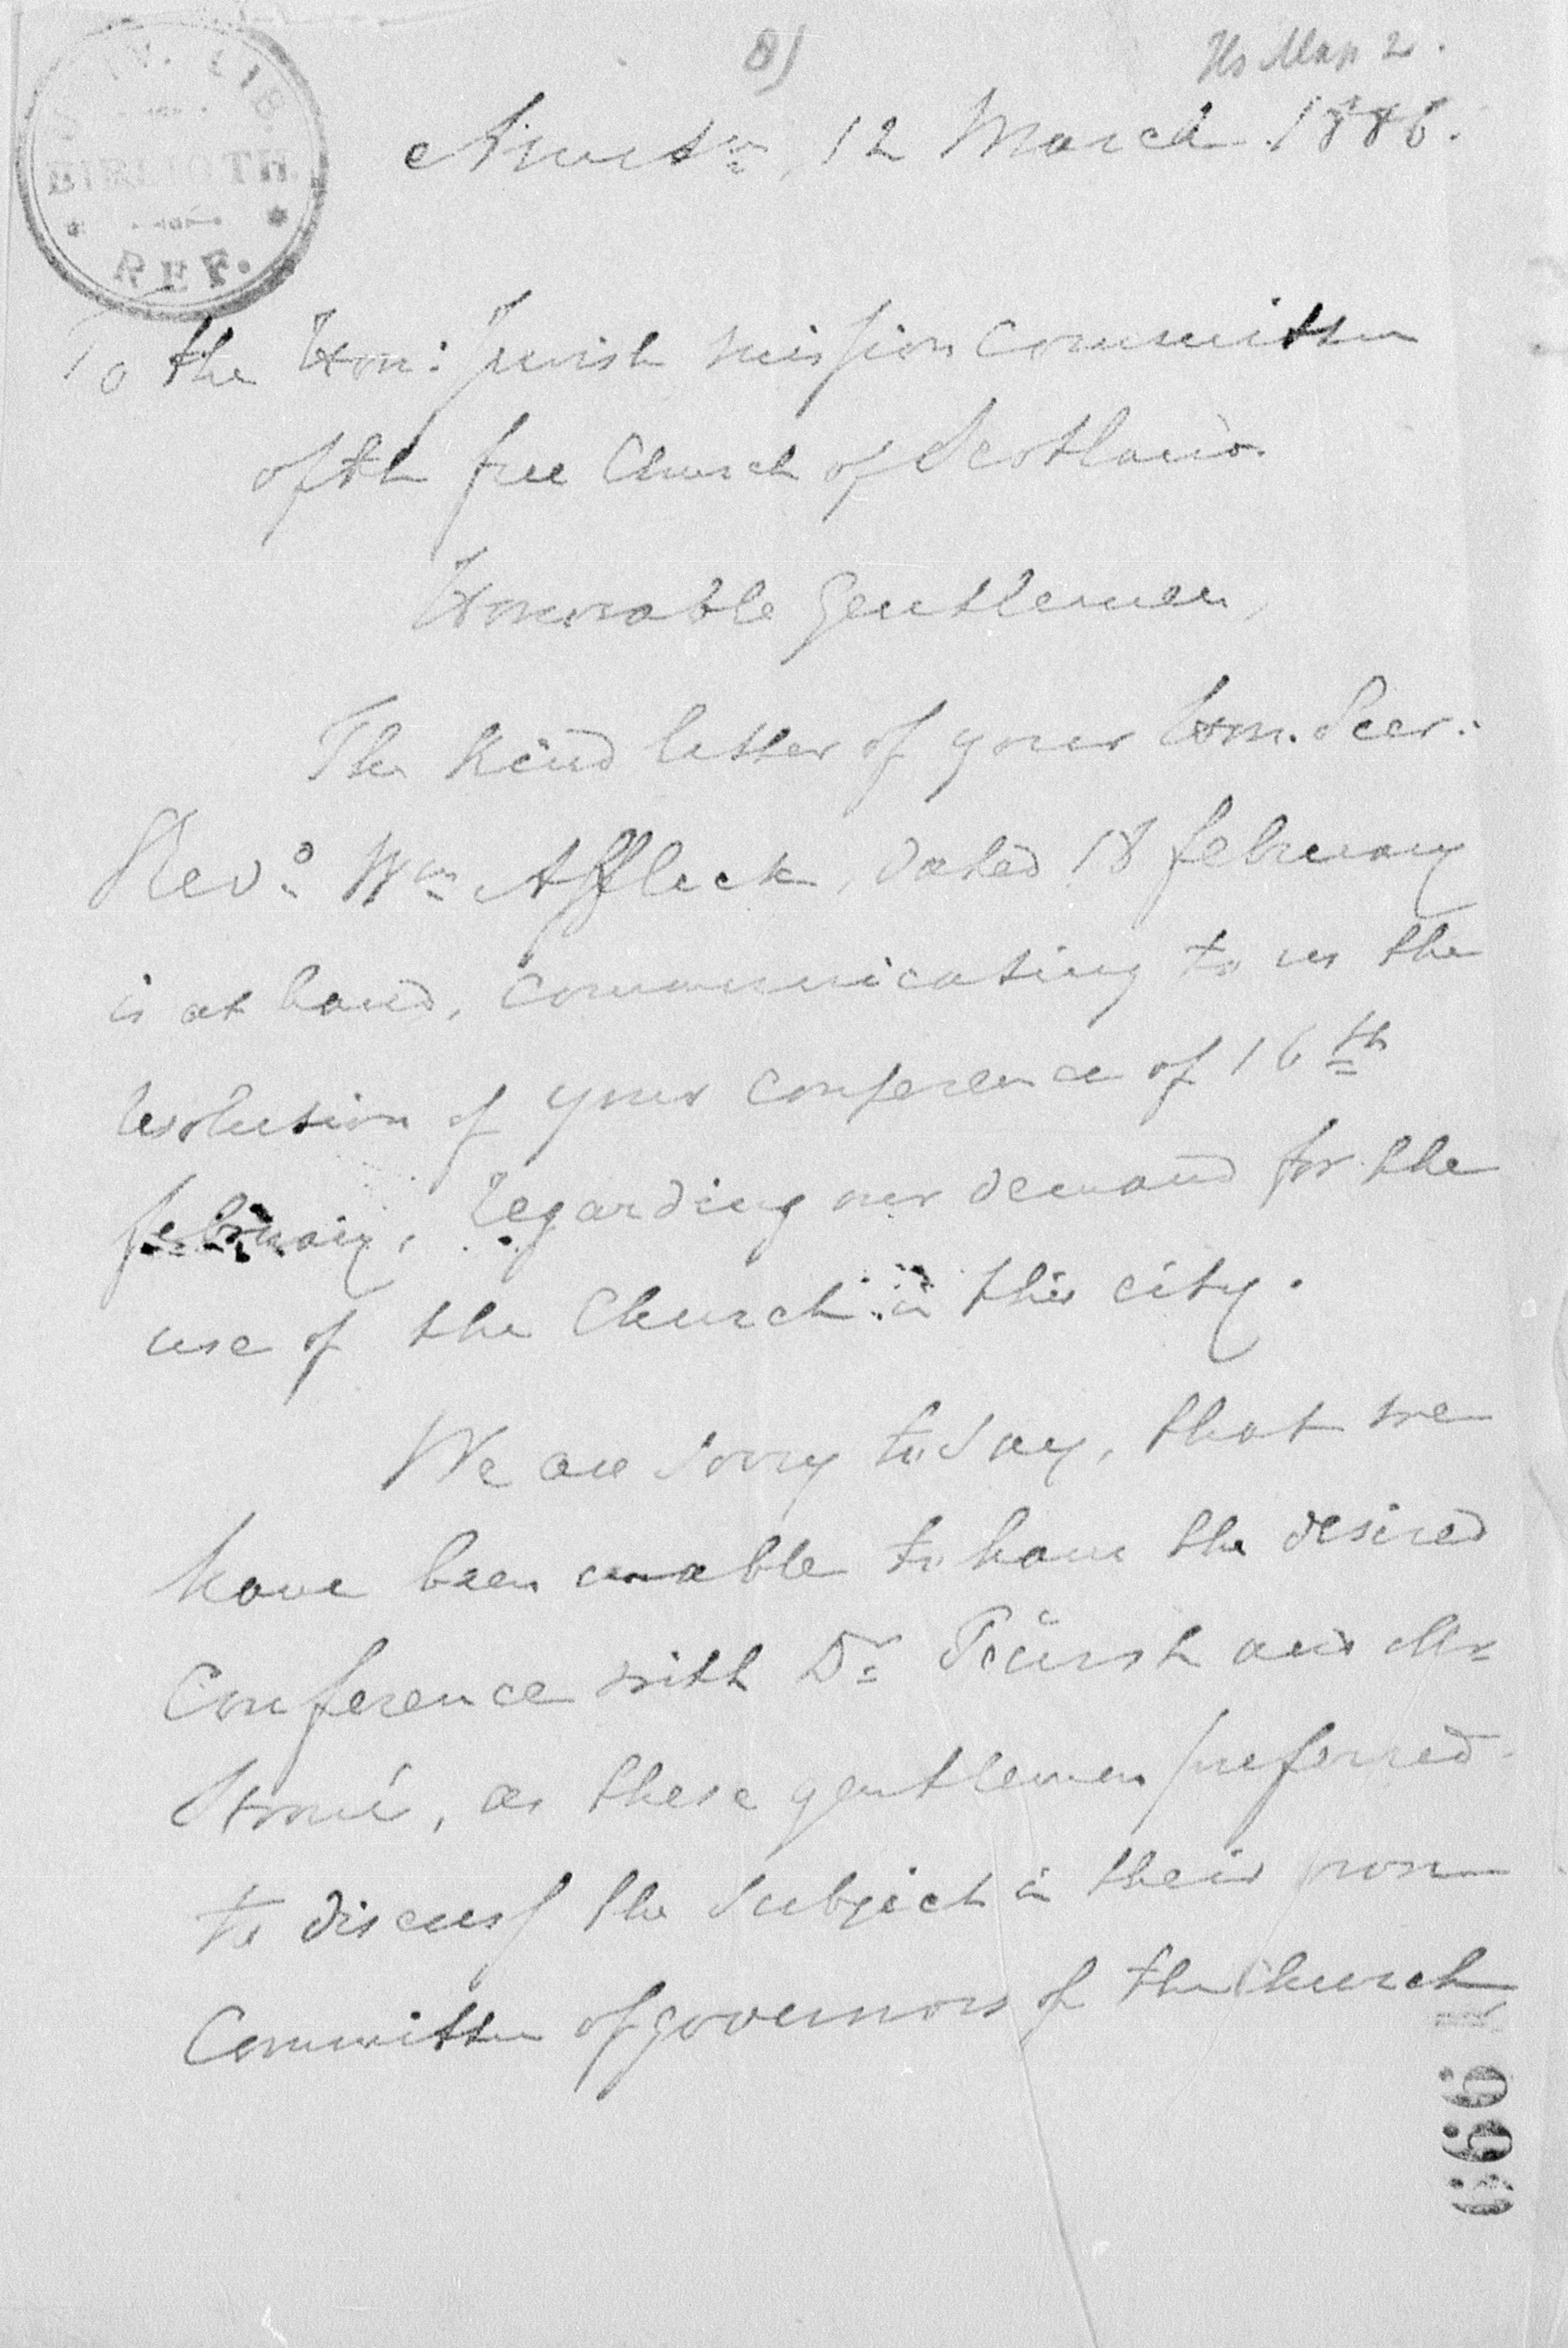 8)
Amst<sup>m</sup>, 12 March 1886.
To the Hon: Jewish mission Committee
of the free Church of Scotland.
Honorable Gentlemen,
The kind letter of your Hon. Secr:
Rev<sup>d</sup>. W<sup>m</sup> Affleck, dated 18 february
is at hand, communicating to us the
resolution of your conference of 16<sup>th</sup>
february, regarding our demand for the
use of the Church in this city.
We are sorry to say, that we
have been unable to have the desired
Conference with D<sup>r</sup> and M<sup>r</sup>
as these gentlemen preferred
to discuss the subject in their own
Committee of governors of the Church
REF.